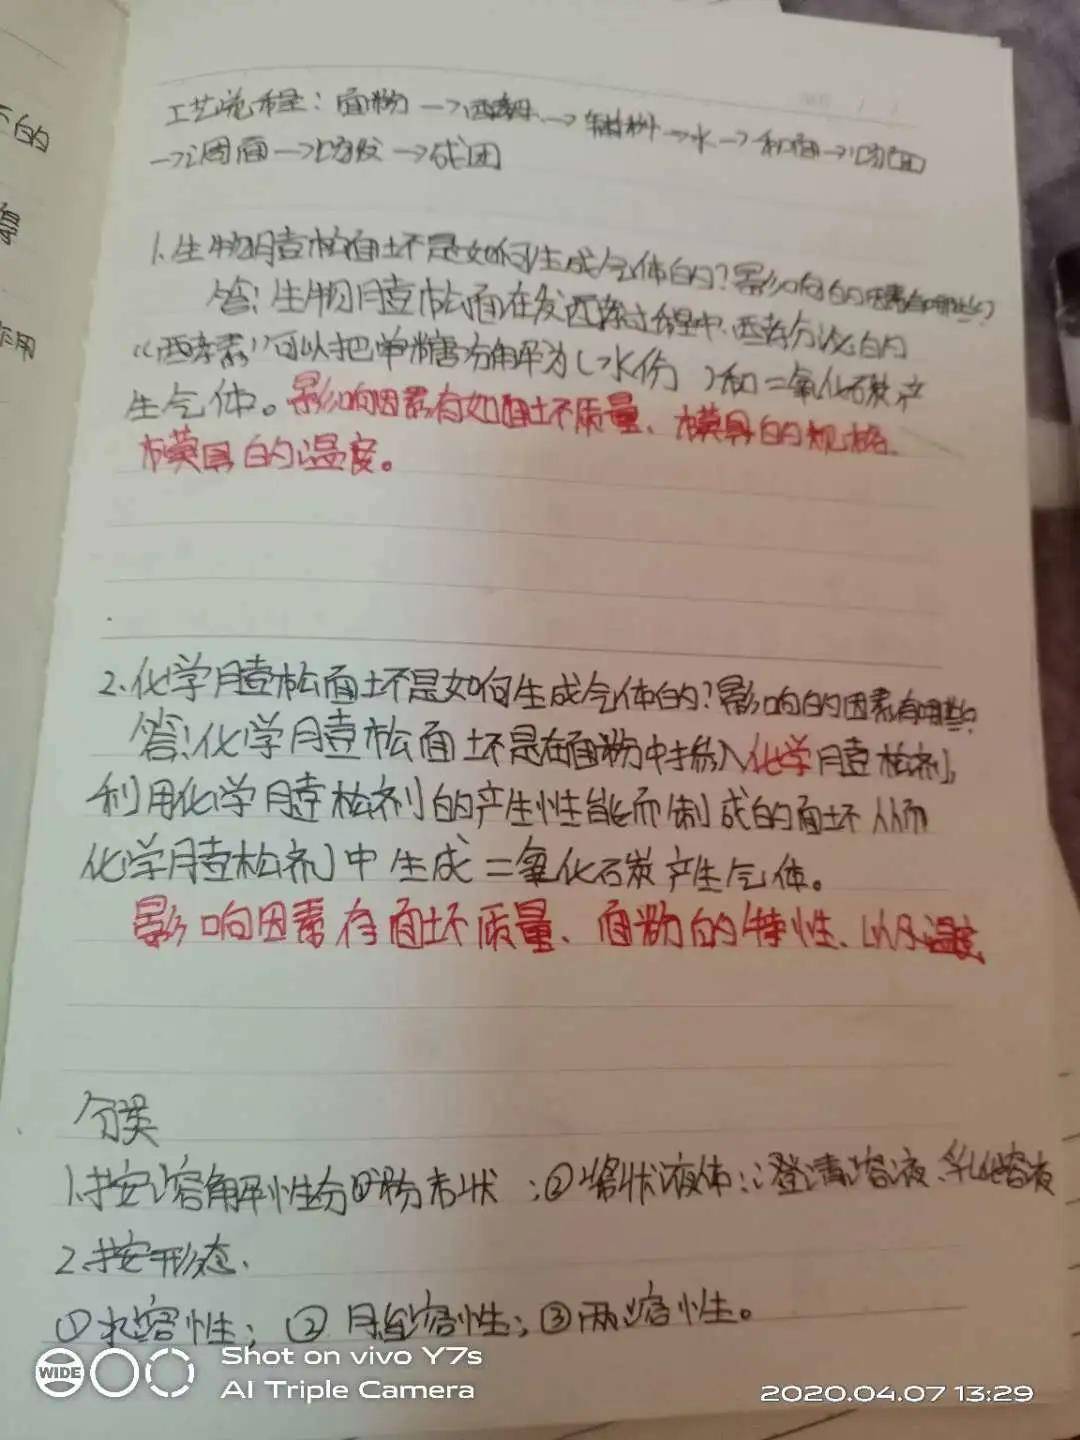 工艺流程：面粉→酵母→辅料→水→和面→切面
→调面→切皮→成团
1.生物膨松面坯是如何生成气体的?影响的因素有哪些?
答:生物膨松面在发酵过程中,酵母分泌的
"酵素"可以把单糖分解为(水份)和二氧化碳产
生气体。影响因素有如面坯质量、模具的规格、
模具的温度。
2.化学膨松面坯是如何生成气体的?影响的因素有哪些
答:化学膨松面坯是在面粉中掺入化学膨松剂,
利用化学膨松剂的产生性能而制成的面坯从而
化学膨松剂中生成二氧化碳产生气体。
影响因素有面坯质量、面粉的特性、以及温度
分类
1.按溶解性分①粉末状;②浆状液体:澄清溶液、乳化溶液
2.按形态.
①水溶性;②脂溶性;③两溶性。
不的
得
作用
WIDE
Shot on vivo Y7s
AI Triple Camera
2020.04.07 13:29